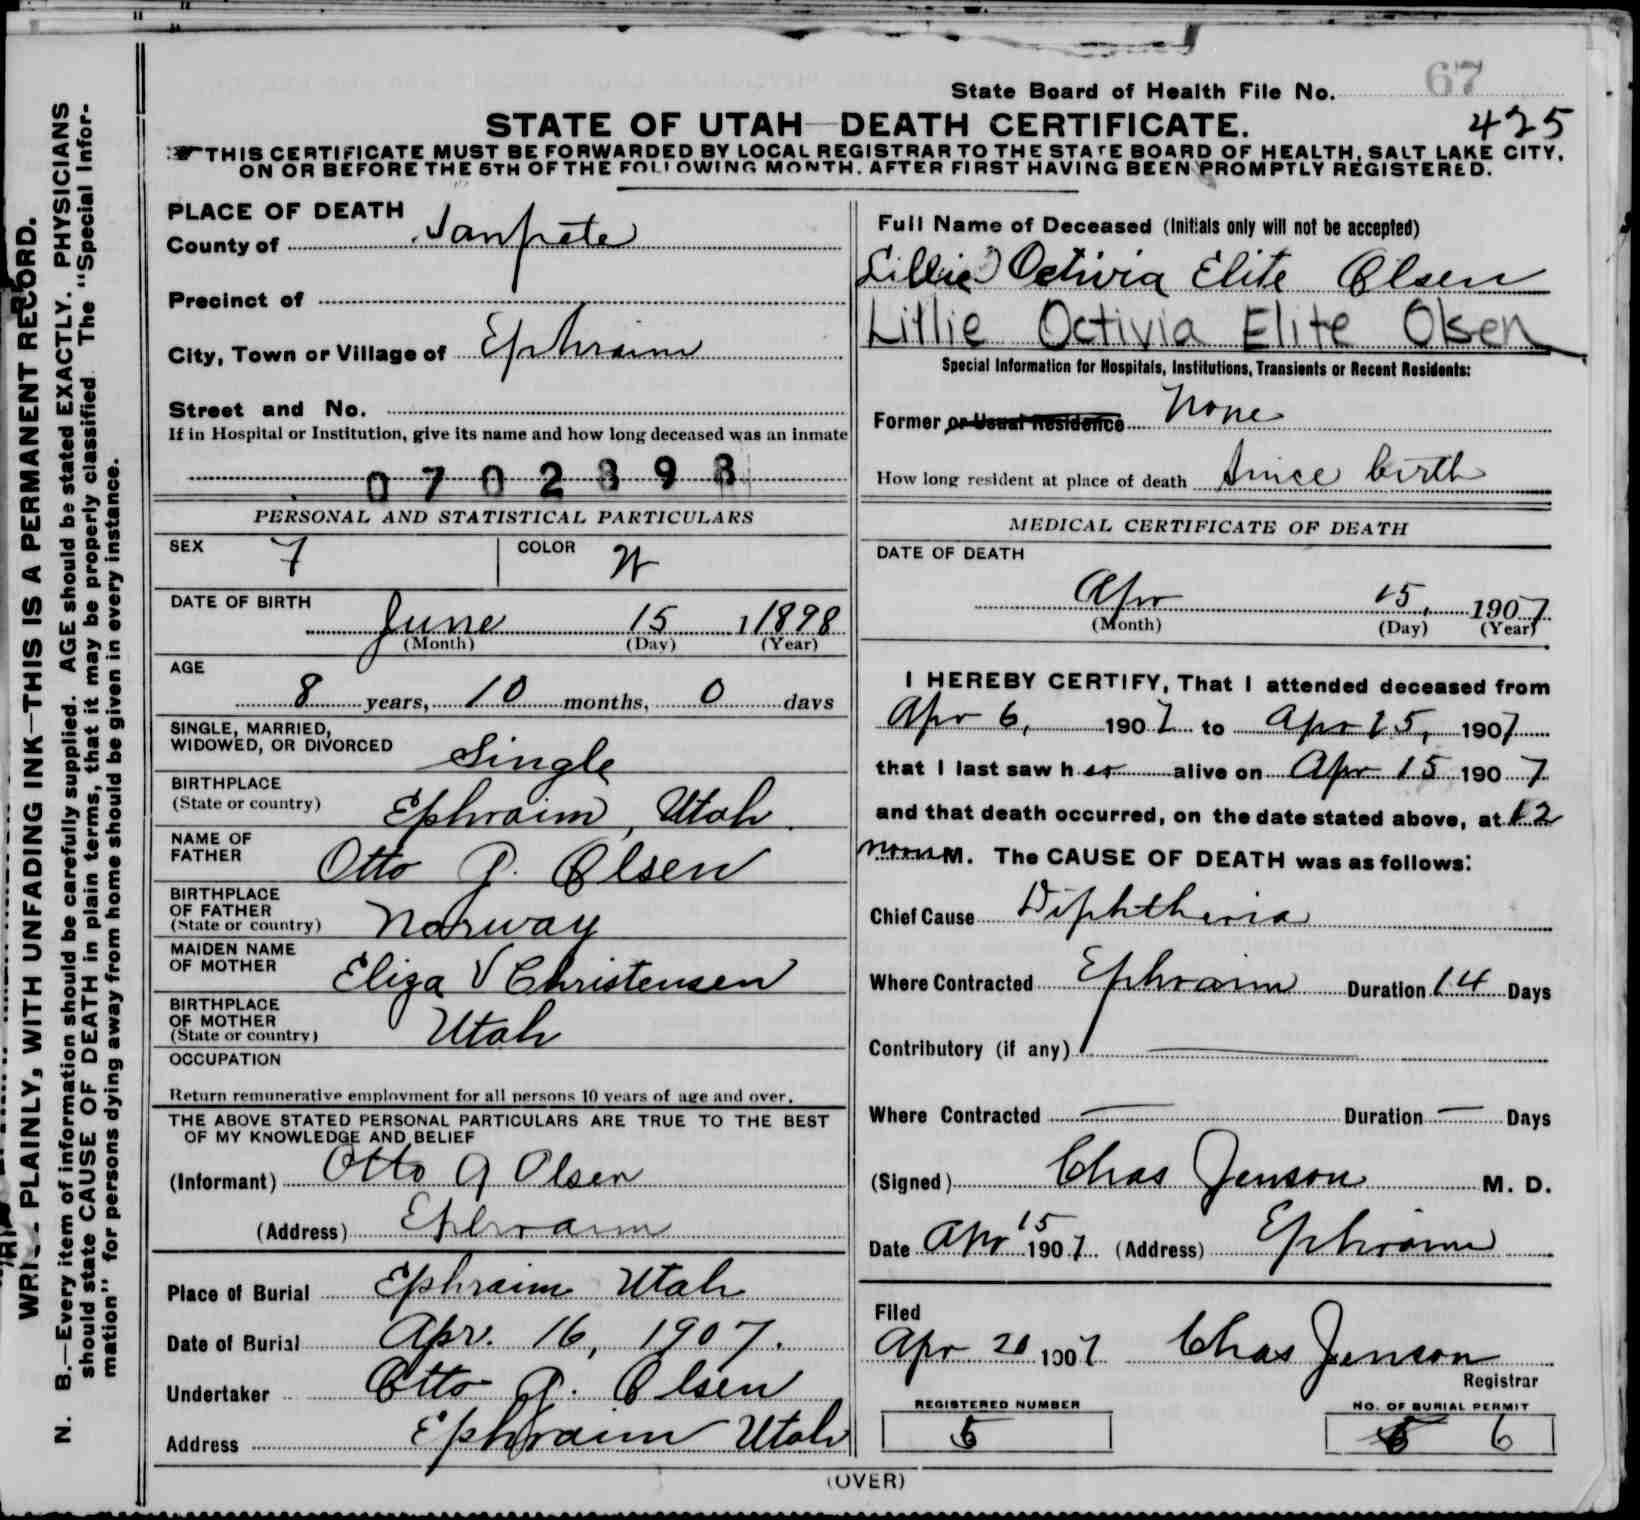 State Board of Health File No. 67
STATE OF UTAH—DEATH CERTIFICATE. 425
THIS CERTIFICATE MUST BE FORWARDED BY LOCAL REGISTRAR TO THE STATE BOARD OF HEALTH, SALT LAKE CITY,
ON OR BEFORE THE 5TH OF THE FOLLOWING MONTH, AFTER FIRST HAVING BEEN PROMPTLY REGISTERED.
PLACE OF DEATH
County of Sanpete
Precinct of
City, Town or Village of Ephraim
Street and No.
If in Hospital or Institution, give its name and how long deceased was an inmate
0702393
PERSONAL AND STATISTICAL PARTICULARS
SEX F COLOR W
DATE OF BIRTH
June 15, 1898
(Month) (Day) (Year)
AGE
8 years, 10 months, 0 days
SINGLE, MARRIED,
WIDOWED, OR DIVORCED Single
BIRTHPLACE
(State or country) Ephraim, Utah.
NAME OF
FATHER Otto P. Olsen
BIRTHPLACE
OF FATHER
(State or country) Norway
MAIDEN NAME
OF MOTHER Eliza V Christensen
BIRTHPLACE
OF MOTHER
(State or country) Utah
OCCUPATION
Return remunerative employment for all persons 10 years of age and over.
THE ABOVE STATED PERSONAL PARTICULARS ARE TRUE TO THE BEST
OF MY KNOWLEDGE AND BELIEF
(Informant) Otto Olsen
(Address) Ephraim
Place of Burial Ephraim Utah
Date of Burial Apr. 16, 1907.
Undertaker Otto P. Olsen
Address Ephraim Utah
Full Name of Deceased (Initials only will not be accepted)
Lillie Octivia Elite Olsen
Lillie Octivia Elite Olsen
Special Information for Hospitals, Institutions, Transients or Recent Residents:
Former or Usual Residence None
How long resident at place of death Since birth
MEDICAL CERTIFICATE OF DEATH
DATE OF DEATH
Apr 15, 1907
(Month) (Day) (Year)
I HEREBY CERTIFY, That I attended deceased from
Apr 6, 1907 to Apr 15, 1907
that I last saw her alive on Apr 15 1907
and that death occurred, on the date stated above, at 12
noon M. The CAUSE OF DEATH was as follows:
Chief Cause Diphtheria
Where Contracted Ephraim Duration 14 Days
Contributory (if any)
Where Contracted — Duration — Days
(Signed) Chas Jenson M. D.
Date Apr 15 1907 (Address) Ephraim
Filed
Apr 20 1907 Chas Jenson
Registrar
REGISTERED NUMBER
5
NO. OF BURIAL PERMIT
6
(OVER)
PLAINLY, WITH UNFADING INK—THIS IS A PERMANENT RECORD.
N. B.—Every item of information should be carefully supplied. AGE should be stated EXACTLY. PHYSICIANS
should state CAUSE OF DEATH in plain terms, that it may be properly classified. The "Special Infor-
mation" for persons dying away from home should be given in every instance.